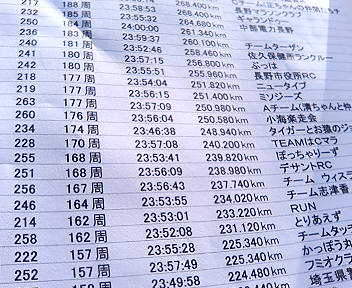 217 188 周 23:58:53 268.400 km
185 周 23:55:32 264.680 km ギャランドゥー
250 184 周 24:00:00 261.340 km 中部電力長野
236 183 周 23:59:37 260.100 km チームターザン
240 181 周 23:52:46 258.460 km 佐久保健所ランクルー
241 180 周 23:57:15 256.800 km ぶっは
242 180 周 23:55:51 255.960 km 長野市役所RC
218 177 周 23:54:04 251.820 km ニュータイプ
209 177 周 23:56:15 251.400 km ミソジーズ
263 177 周 23:57:09 250.980 km Aチーム(清ちゃんと枠
260 176 周 23:56:04 250.580 km 小海楽走会
234 174 周 23:46:38 248.940 km タイガーとお猿のジョ
228 170 周 23:57:08 240.200 km TEAMはCマラ
255 168 周 23:53:41 239.820 km ぽっちゃりーず
251 168 周 23:56:09 238.980 km デサントRC
256 167 周 23:56:43 237.740 km チーム ウィスラ
246 164 周 23:53:55 234.020 km チーム志津香
214 162 周 23:53:01 233.220 km RUN
258 162 周 23:52:08 231.120 km とりあえず
222 157 周 23:55:28 225.340 km チームタッチ
257 157 周 23:57:49 225.340 km かっぽう丸
252 周 23:49:58 224.480 km フミオクラ
埼玉県警